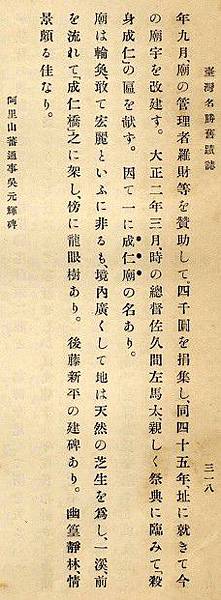 臺灣名勝舊蹟誌
三一八
年九月廟の管理者羅財等を贊助して、四千圓を捐集し、同四十五年、址に就きて今
の廟宇を改建す。大正二年三月、時の總督佐久間左馬太、親しく祭典に臨みて「殺
身成仁」の匾を献す。因て一に成仁廟の名あり。
廟は輪奐、敢て宏麗といふに非るも、境內廣くして地は天然の芝生を爲し、一溪、前
を流れて「成仁橋」之に架し、傍に龍眼樹あり。後藤新平の建碑あり。幽篁靜林、情
景頗る佳なり。
阿里山蕃通事吳元輝碑